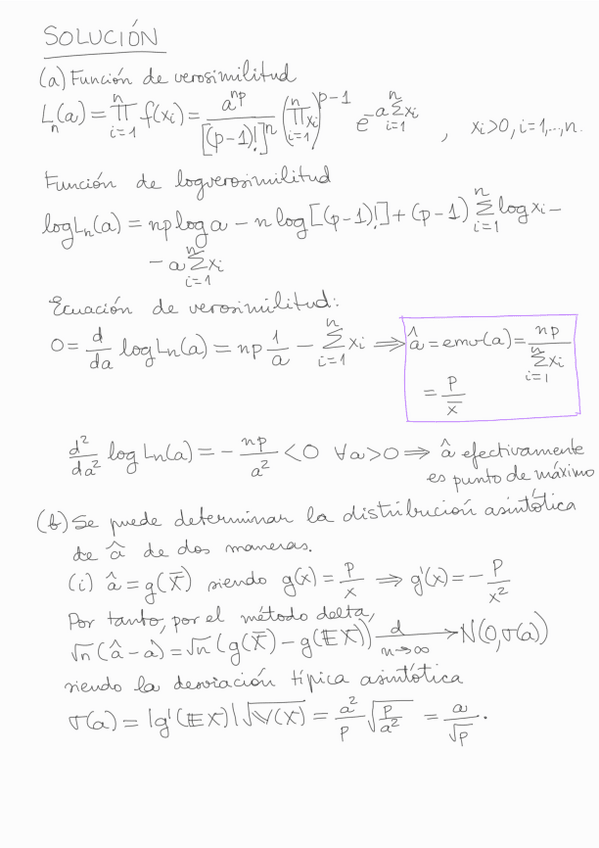 SOLUCIÓN
(a) Función de verosimilitud
Lₙ(a) = ∏ᵢ₌₁ⁿ f(xᵢ) = a^{np} / [(p-1)!]ⁿ (∏ᵢ₌₁ⁿ xᵢ)^{p-1} e^{-a∑ᵢ₌₁ⁿ xᵢ} , xᵢ>0, i=1,...,n.
Función de logverosimilitud
log Lₙ(a) = np log a - n log [(p-1)!] + (p-1) ∑ᵢ₌₁ⁿ log xᵢ -
- a ∑ᵢ₌₁ⁿ xᵢ
Ecuación de verosimilitud:
0 = d/da log Lₙ(a) = np 1/a - ∑ᵢ₌₁ⁿ xᵢ ⟹ â = emv(a) = np / ∑ᵢ₌₁ⁿ xᵢ
= p / x̄
d²/da² log Lₙ(a) = - np/a² < 0 ∀a>0 ⟹ â efectivamente
es punto de máximo
(b) Se puede determinar la distribución asintótica
de â de dos maneras.
(i) â = g(X̄) siendo g(x) = p/x ⟹ g'(x) = - p/x²
Por tanto, por el método delta,
√n (â - a) = √n (g(X̄) - g(𝔼X)) —d→ n→∞ N(0, σ(a))
siendo la desviación típica asintótica
σ(a) = |g'(𝔼X)| √𝕍(X) = a²/p √(p/a²) = a/√p .